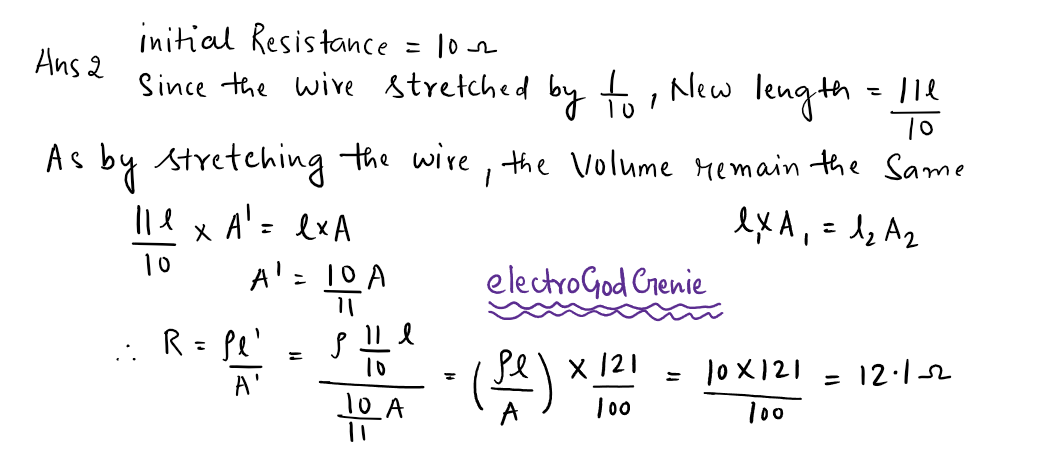 Ans 2 initial Resistance = 10 Ω
Since the wire stretched by 1/10, New length = 11l/10
As by stretching the wire, the Volume remain the Same
11l/10 × A' = l×A
l₁×A₁ = l₂A₂
A' = 10/11 A
electroGodGenie
∴ R = ρl'/A' = (ρ 11/10 l)/(10/11 A) = (ρl/A) × 121/100 = 10×121/100 = 12.1 Ω